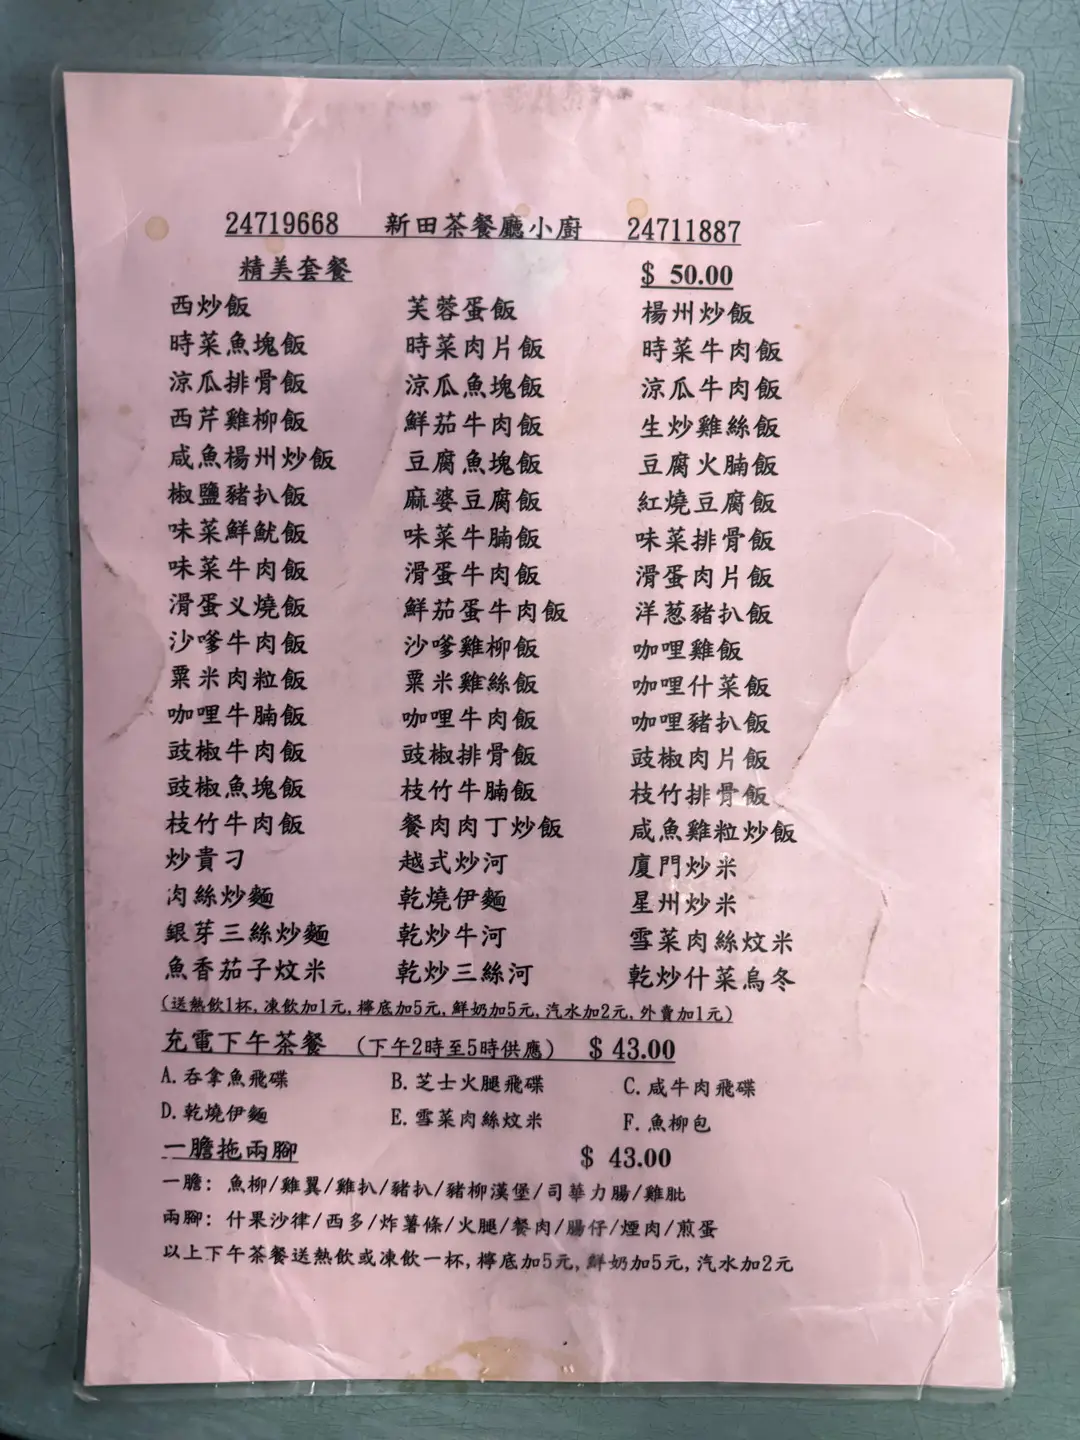 24719668 新田茶餐廳小廚 24711887
精美套餐 $ 50.00
西炒飯 芙蓉蛋飯 楊州炒飯
時菜魚塊飯 時菜肉片飯 時菜牛肉飯
涼瓜排骨飯 涼瓜魚塊飯 涼瓜牛肉飯
西芹雞柳飯 鮮茄牛肉飯 生炒雞絲飯
咸魚楊州炒飯 豆腐魚塊飯 豆腐火腩飯
椒鹽豬扒飯 麻婆豆腐飯 紅燒豆腐飯
味菜鮮魷飯 味菜牛腩飯 味菜排骨飯
味菜牛肉飯 滑蛋牛肉飯 滑蛋肉片飯
滑蛋义燒飯 鮮茄蛋牛肉飯 洋葱豬扒飯
沙嗲牛肉飯 沙嗲雞柳飯 咖哩雞飯
粟米肉粒飯 粟米雞絲飯 咖哩什菜飯
咖哩牛腩飯 咖哩牛肉飯 咖哩豬扒飯
豉椒牛肉飯 豉椒排骨飯 豉椒肉片飯
豉椒魚塊飯 枝竹牛腩飯 枝竹排骨飯
枝竹牛肉飯 餐肉肉丁炒飯 咸魚雞粒炒飯
炒貴刁 越式炒河 廈門炒米
肉絲炒麵 乾燒伊麵 星州炒米
銀芽三絲炒麵 乾炒牛河 雪菜肉絲炆米
魚香茄子炆米 乾炒三絲河 乾炒什菜烏冬
(送熱飲1杯,凍飲加1元,檸底加5元,鮮奶加5元,汽水加2元,外賣加1元)
充電下午茶餐 (下午2時至5時供應) $ 43.00
A.吞拿魚飛碟 B.芝士火腿飛碟 C.咸牛肉飛碟
D.乾燒伊麵 E.雪菜肉絲炆米 F.魚柳包
一膽拖兩腳 $ 43.00
一膽: 魚柳/雞翼/雞扒/豬扒/豬柳漢堡/司華力腸/雞肶
兩腳: 什果沙律/西多/炸薯條/火腿/餐肉/腸仔/煙肉/煎蛋
以上下午茶餐送熱飲或凍飲一杯,檸底加5元,鮮奶加5元,汽水加2元